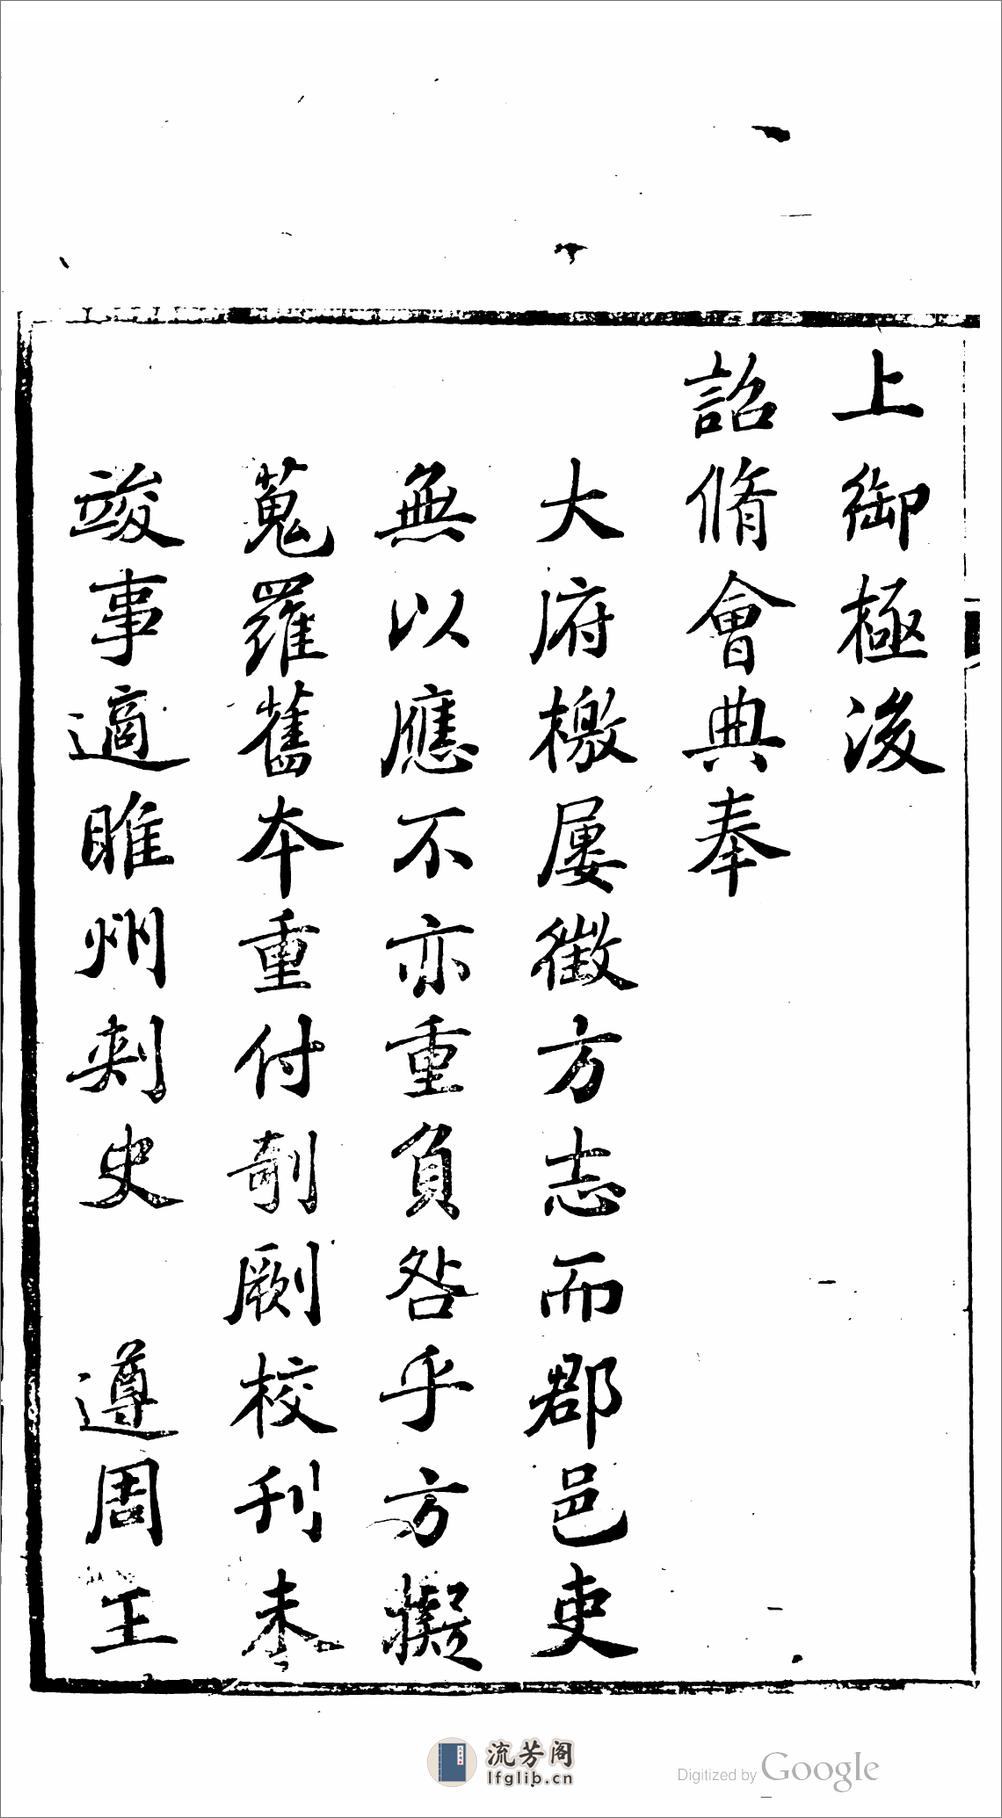 上御極後
詔脩會典奉
大府檄屢徵方志而郡邑吏
無以應不亦重負咎乎方擬
蒐羅舊本重付剞劂校刊未
竣事適睢州刺史 遵周王
流芳阁
lfglib.cn
Digitized by Google